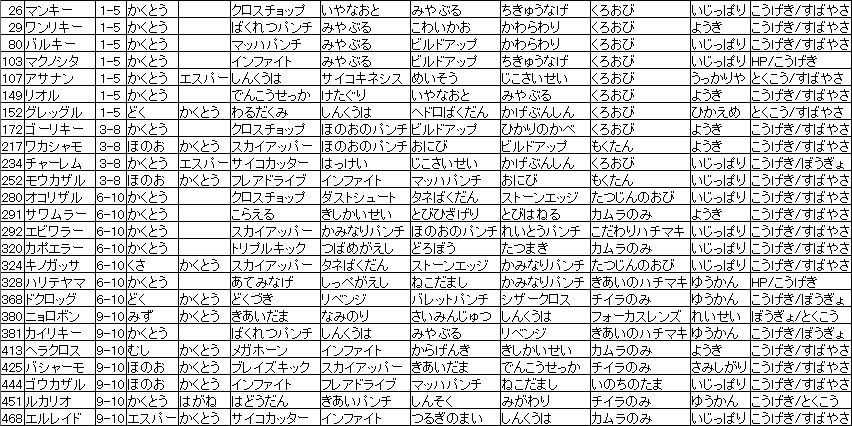 26 マンキー 1-5 かくとう クロスチョップ いやなおと みやぶる ちきゅうなげ くろおび いじっぱり こうげき/すばやさ
29 ワンリキー 1-5 かくとう ばくれつパンチ みやぶる こわいかお かわらわり くろおび ようき こうげき/すばやさ
80 バルキー 1-5 かくとう マッハパンチ みやぶる ビルドアップ かわらわり くろおび いじっぱり こうげき/すばやさ
103 マクノシタ 1-5 かくとう インファイト みやぶる ビルドアップ ちきゅうなげ くろおび いじっぱり HP/こうげき
107 アサナン 1-5 かくとう エスパー しんくうは サイコキネシス めいそう じこさいせい くろおび うっかりや とくこう/すばやさ
149 リオル 1-5 かくとう でんこうせっか けたぐり いやなおと みやぶる くろおび ようき こうげき/すばやさ
152 グレッグル 1-5 どく かくとう わるだくみ しんくうは ヘドロばくだん かげぶんしん くろおび ひかえめ とくこう/すばやさ
172 ゴーリキー 3-8 かくとう クロスチョップ ほのおのパンチ ビルドアップ ひかりのかべ くろおび ようき こうげき/すばやさ
217 ワカシャモ 3-8 ほのお かくとう スカイアッパー ほのおのパンチ おにび ビルドアップ もくたん ようき こうげき/すばやさ
234 チャーレム 3-8 かくとう エスパー サイコカッター はっけい じこさいせい かげぶんしん くろおび いじっぱり こうげき/ぼうぎょ
252 モウカザル 3-8 ほのお かくとう フレアドライブ インファイト マッハパンチ おにび もくたん いじっぱり こうげき/すばやさ
280 オコリザル 6-10 かくとう クロスチョップ ダストシュート タネばくだん ストーンエッジ たつじんのおび いじっぱり こうげき/すばやさ
291 サワムラー 6-10 かくとう こらえる きしかいせい とびひざげり とびはねる カムラのみ ようき こうげき/すばやさ
292 エビワラー 6-10 かくとう スカイアッパー かみなりパンチ ほのおのパンチ れいとうパンチ こだわりハチマキ いじっぱり こうげき/すばやさ
320 カポエラー 6-10 かくとう トリプルキック つばめがえし どろぼう たつまき カムラのみ いじっぱり こうげき/すばやさ
324 キノガッサ 6-10 くさ かくとう スカイアッパー タネばくだん ストーンエッジ かみなりパンチ たつじんのおび いじっぱり こうげき/すばやさ
328 ハリテヤマ 6-10 かくとう あてみなげ しっぺがえし ねこだまし かみなりパンチ きあいのハチマキ ゆうかん HP/こうげき
368 ドクロッグ 6-10 どく かくとう どくづき リベンジ バレットパンチ シザークロス チイラのみ ゆうかん こうげき/ぼうぎょ
380 ニョロボン 9-10 みず かくとう きあいだま なみのり さいみんじゅつ しんくうは フォーカスレンズ れいせい ぼうぎょ/とくこう
381 カイリキー 9-10 かくとう ばくれつパンチ しんくうは みやぶる リベンジ きあいのハチマキ ゆうかん こうげき/ぼうぎょ
413 ヘラクロス 9-10 むし かくとう メガホーン インファイト からげんき きしかいせい カムラのみ ようき こうげき/すばやさ
425 バシャーモ 9-10 ほのお かくとう ブレイズキック スカイアッパー きあいだま でんこうせっか チイラのみ さみしがり こうげき/すばやさ
444 ゴウカザル 9-10 ほのお かくとう インファイト フレアドライブ マッハパンチ ねこだまし いのちのたま いじっぱり こうげき/すばやさ
451 ルカリオ 9-10 かくとう はがね はどうだん きあいパンチ しんそく みがわり チイラのみ ゆうかん こうげき/とくこう
468 エルレイド 9-10 エスパー かくとう サイコカッター インファイト つるぎのまい しんくうは カムラのみ いじっぱり こうげき/すばやさ